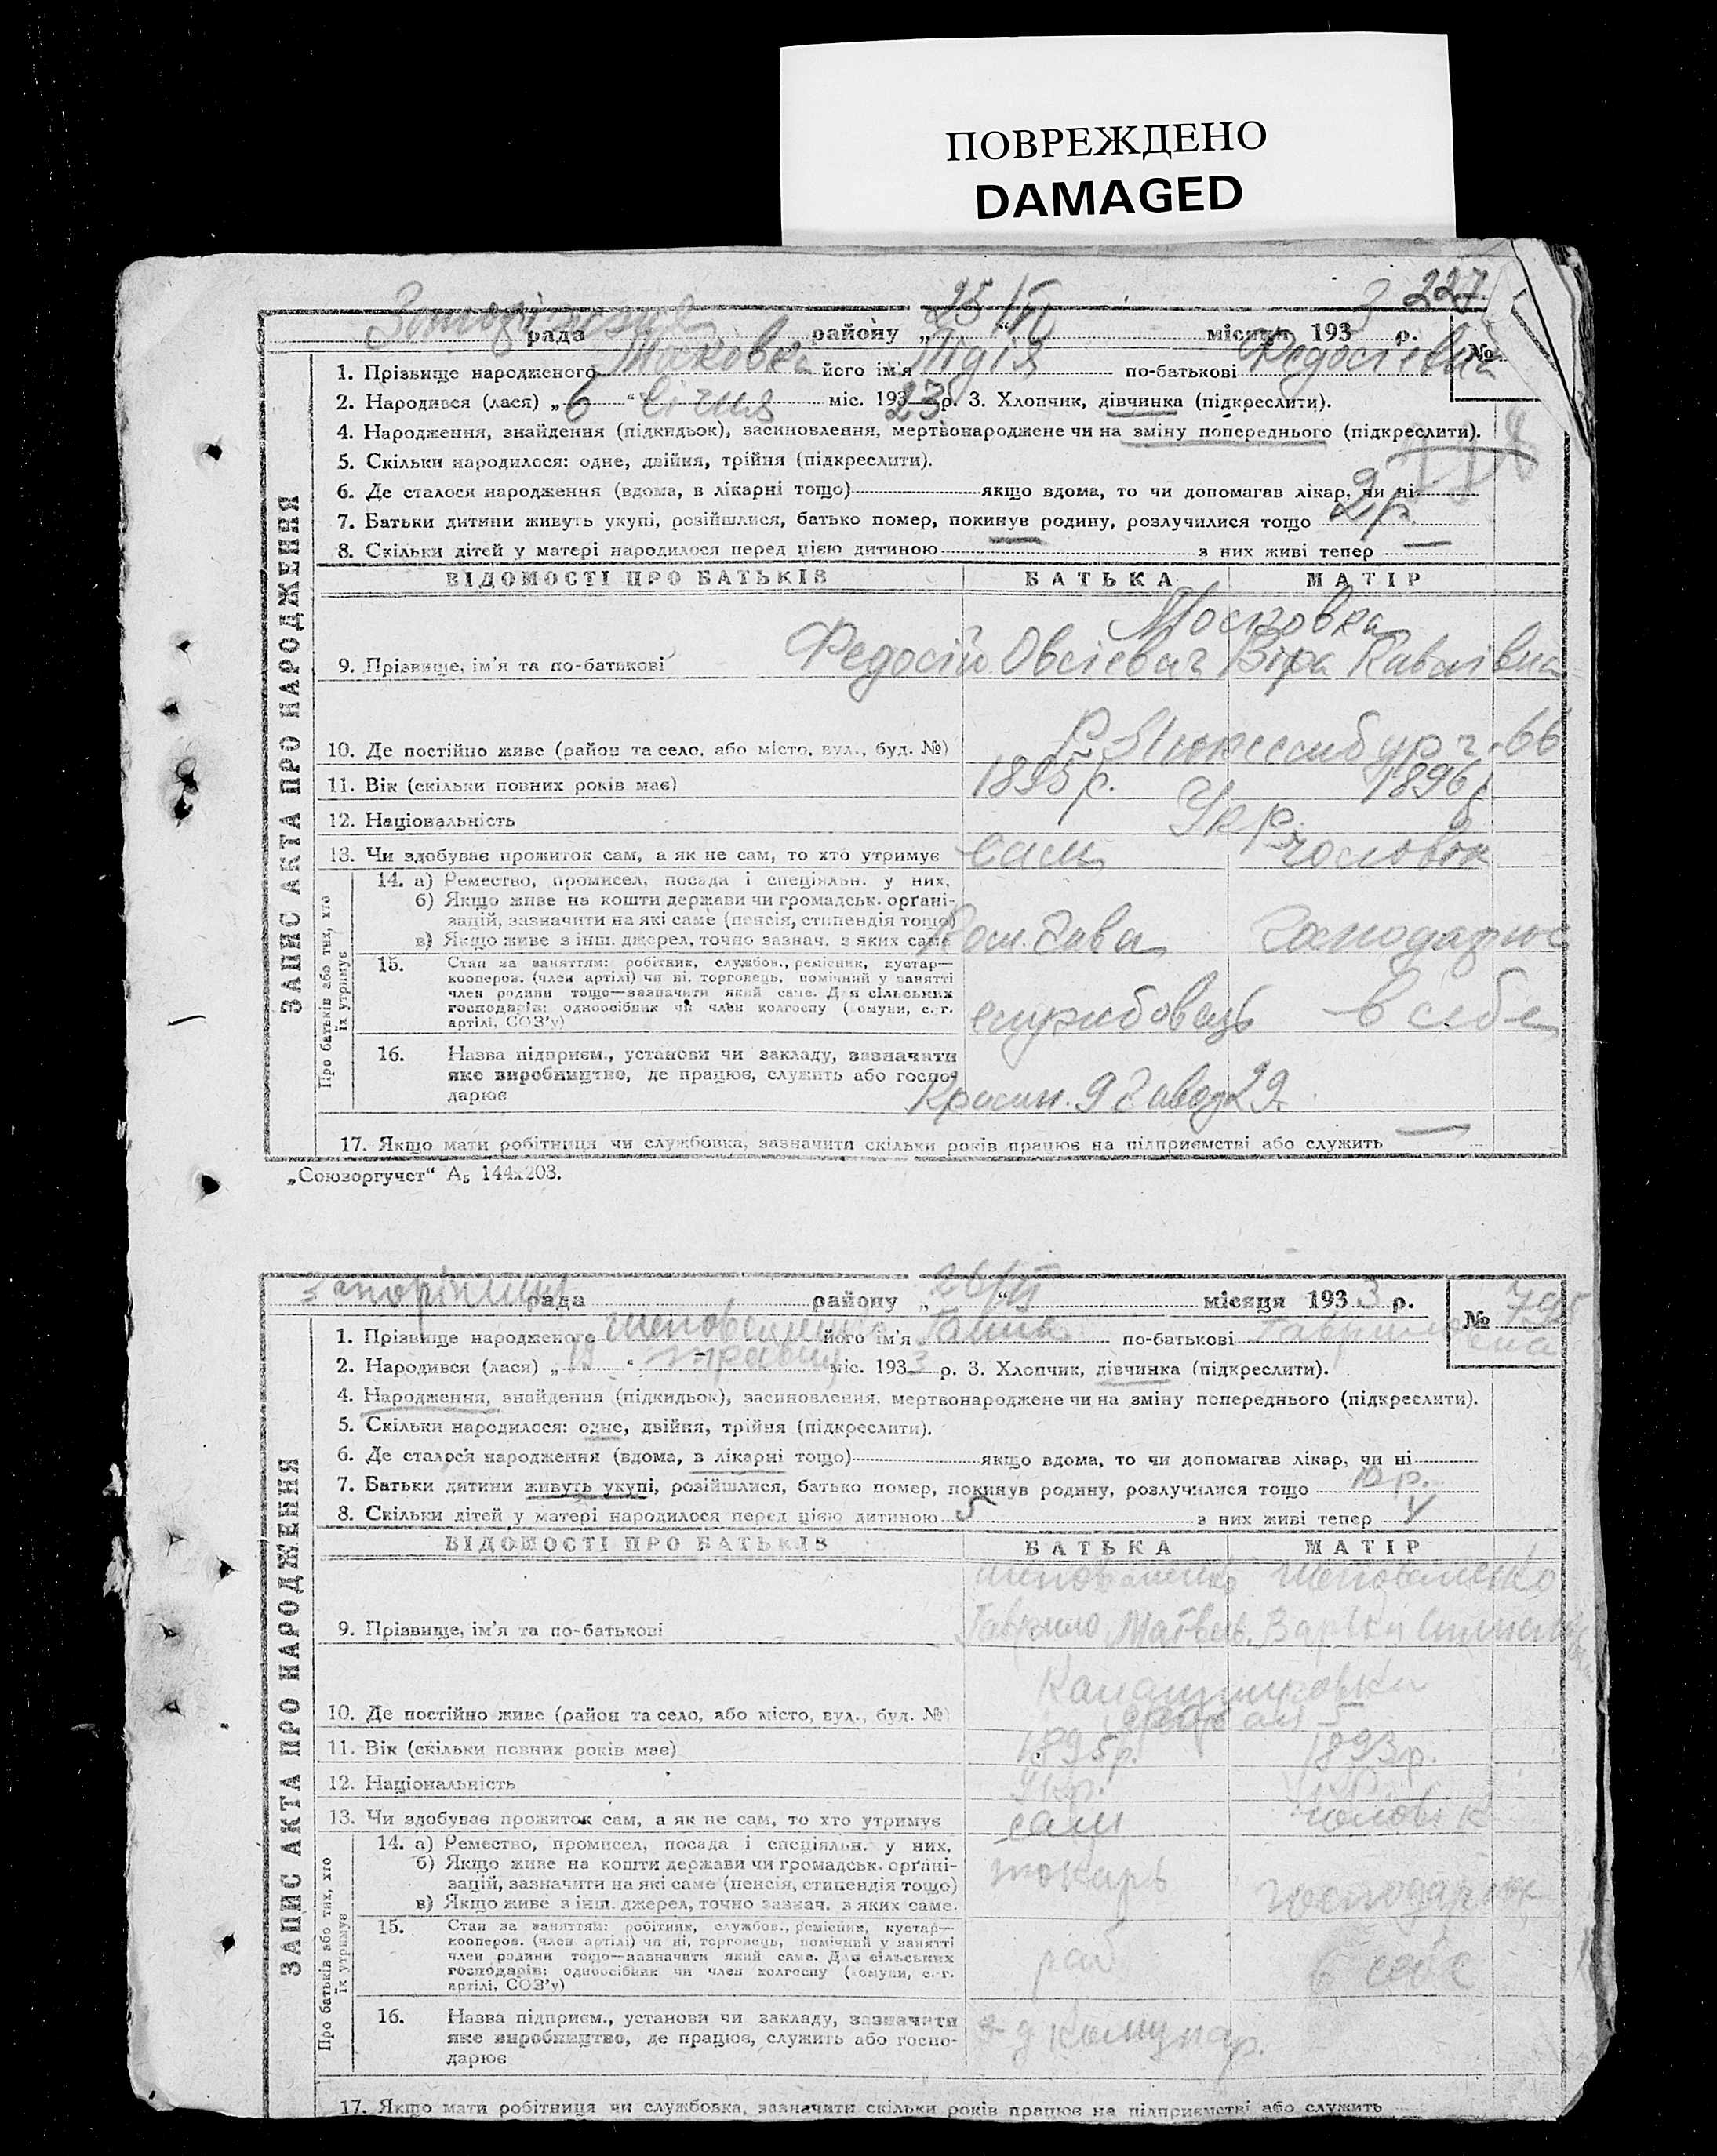 ПОВРЕЖДЕНО
DAMAGED
227
рада району „25/VI“ місяця 193 3 р. №
1. Прізвище народженого Московка його ім'я Лідія по-батькові Федосіевна
2. Народився (лася) „6“ січня міс. 1923 р. 3. Хлопчик, дівчинка (підкреслити).
4. Народження, знайдення (підкидьок), засиновлення, мертвонароджене чи на зміну попереднього (підкреслити).
5. Скільки народилося: одне, двійня, трійня (підкреслити).
6. Де сталося народження (вдома, в лікарні тощо) якщо вдома, то чи допомагав лікар, чи ні
7. Батьки дитини живуть укупі, розійшлися, батько помер, покинув родину, розлучилися тощо 2 р.
8. Скільки дітей у матері народилося перед цією дитиною — з них живі тепер —
ЗАПИС АКТА ПРО НАРОДЖЕННЯ
ВІДОМОСТІ ПРО БАТЬКІВ БАТЬКА МАТІР
Московка
9. Прізвище, ім'я та по-батькові Федосій Овсієвич Віра
10. Де постійно живе (район та село, або місто, вул., буд. №) Р. Люксембург 66
11. Вік (скільки повних років має) 1895 р. 1896 р.
12. Національність Укр.
13. Чи здобуває прожиток сам, а як не сам, то хто утримує сам чоловік
Про батьків або тих, хто їх утримує
14. а) Ремество, промисел, посада і спеціяльн. у них,
б) Якщо живе на кошти держави чи громадськ. орґані-
зацій, зазначити на які саме (пенсія, стипендія тощо)
в) Якщо живе з інш. джерел, точно зазнач. з яких саме господарює
15. Стан за заняттям: робітник, службов., ремісник, кустар—
кооперов. (член артілі) чи ні, торговець, помічний у занятті
член родини тощо—зазначити який саме. Для сільських
господарів: одноосібник чи член колгоспу (комуни, с.-г.
артілі, СОЗ'у) службовець в себе
16. Назва підприєм., установи чи закладу, зазначити
яке виробництво, де працює, служить або госпо-
дарює завод 29
17. Якщо мати робітниця чи службовка, зазначити скільки років працює на підприємстві або служить —
„Союзоргучет“ А₅ 144х203.
рада району „26/VI“ місяця 193 3 р. № 795
1. Прізвище народженого Шаповаленко його ім'я Галина по-батькові
2. Народився (лася) „12“ травня міс. 193 3 р. 3. Хлопчик, дівчинка (підкреслити).
4. Народження, знайдення (підкидьок), засиновлення, мертвонароджене чи на зміну попереднього (підкреслити).
5. Скільки народилося: одне, двійня, трійня (підкреслити).
6. Де сталося народження (вдома, в лікарні тощо) якщо вдома, то чи допомагав лікар, чи ні
7. Батьки дитини живуть укупі, розійшлися, батько помер, покинув родину, розлучилися тощо 10 р.
8. Скільки дітей у матері народилося перед цією дитиною 5 з них живі тепер 4
ЗАПИС АКТА ПРО НАРОДЖЕННЯ
ВІДОМОСТІ ПРО БАТЬКІВ БАТЬКА МАТІР
Шаповаленко Шаповаленко
9. Прізвище, ім'я та по-батькові Гаврило Матвеев.
10. Де постійно живе (район та село, або місто, вул., буд. №)
11. Вік (скільки повних років має) 1895 р. 1893 р.
12. Національність укр. укр.
13. Чи здобуває прожиток сам, а як не сам, то хто утримує сам чоловік
Про батьків або тих, хто їх утримує
14. а) Ремество, промисел, посада і спеціяльн. у них,
б) Якщо живе на кошти держави чи громадськ. орґані-
зацій, зазначити на які саме (пенсія, стипендія тощо)
в) Якщо живе з інш. джерел, точно зазнач. з яких саме. токарь господарює
15. Стан за заняттям: робітник, службов., ремісник, кустар—
кооперов. (член артілі) чи ні, торговець, помічний у занятті
член родини тощо—зазначити який саме. Для сільських
господарів: одноосібник чи член колгоспу (комуни, с.-г.
артілі, СОЗ'у) роб в себе
16. Назва підприєм., установи чи закладу, зазначити
яке виробництво, де працює, служить або госпо-
дарює з-д комунар.
17. Якщо мати робітниця чи службовка, зазначити скільки років працює на підприємстві або служить